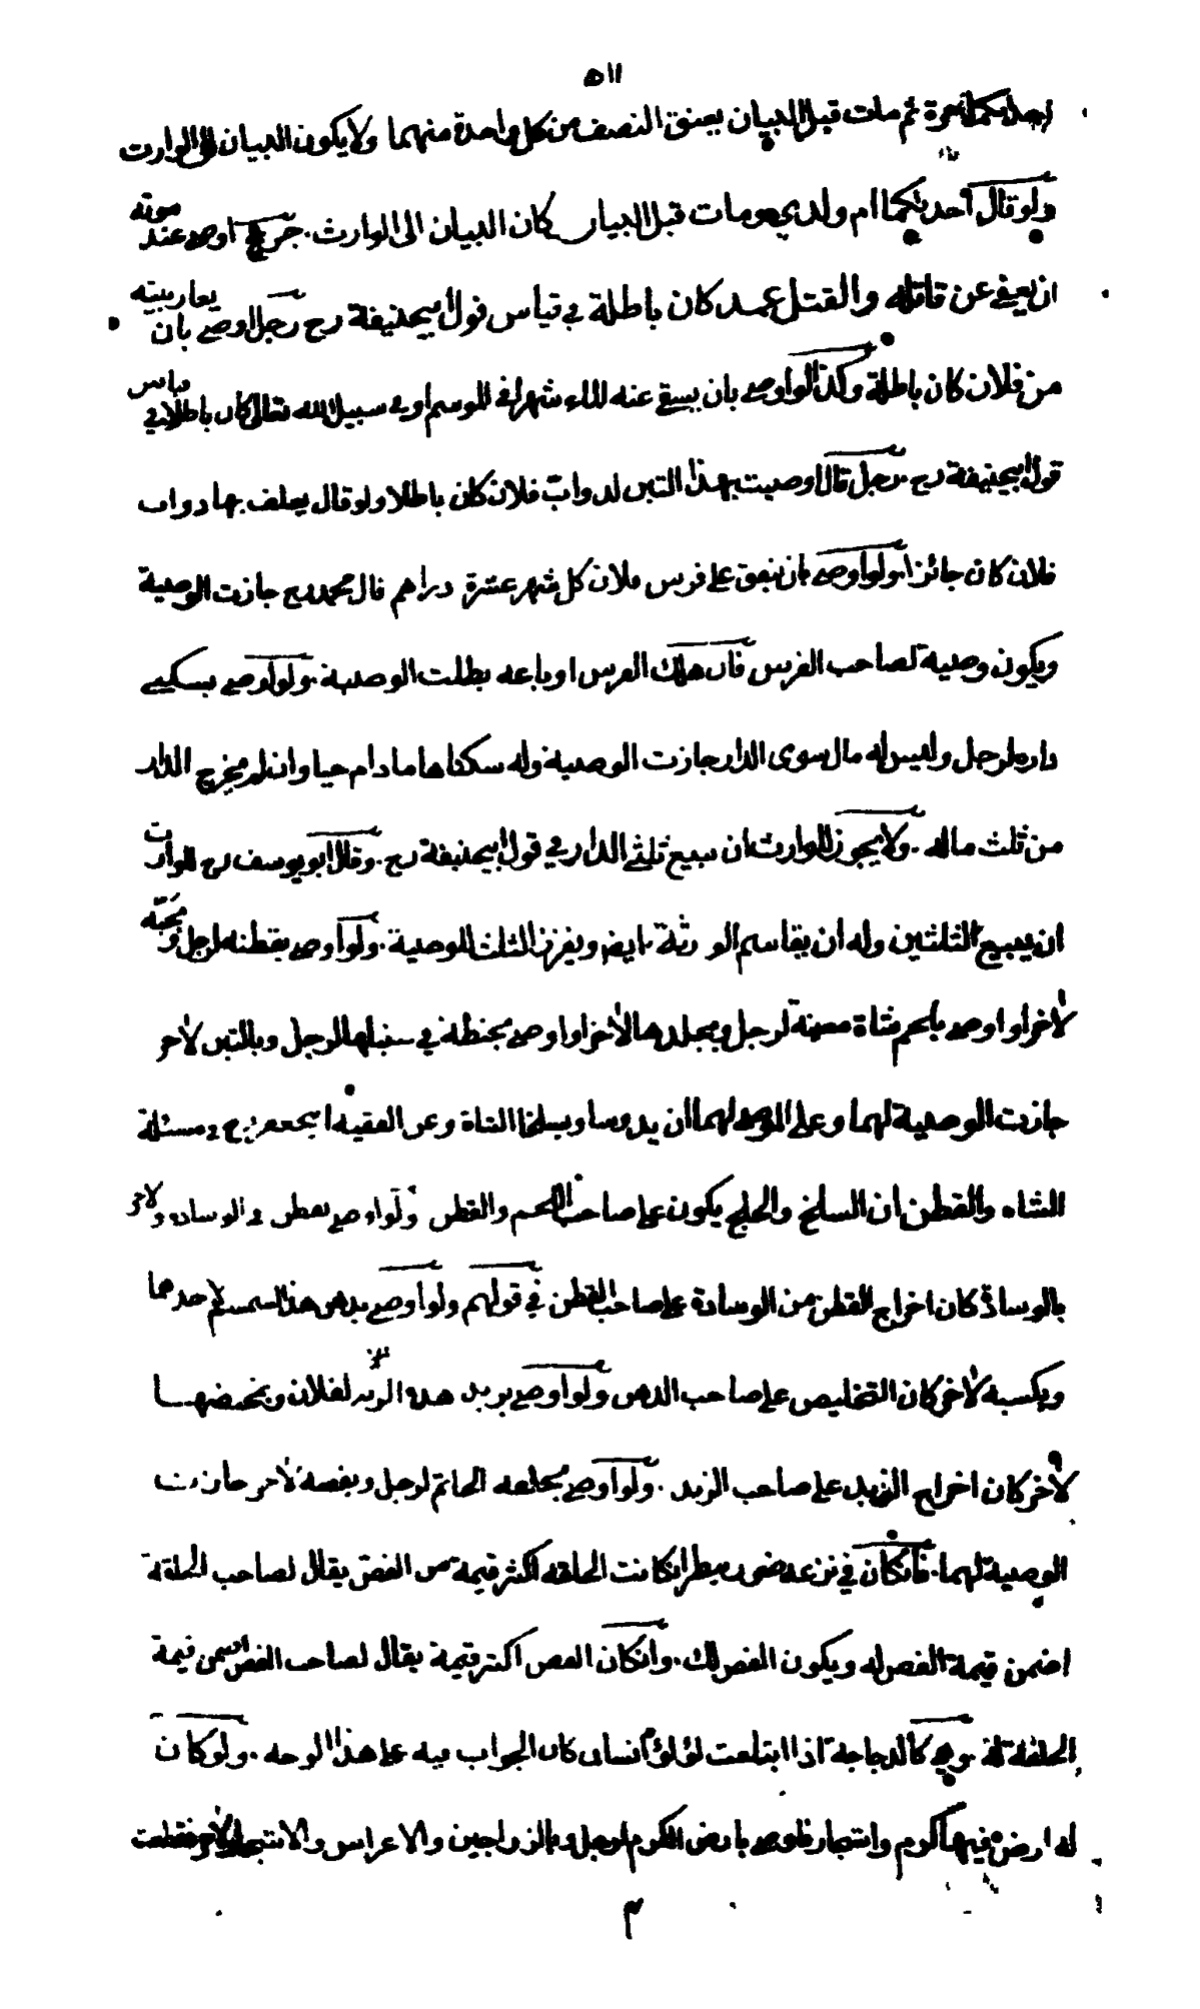 ٥١١
احداكما حرة ثم مات قبل البيان يعتق النصف من كل واحدة منهما ولا يكون البيان الى الوارث
ولو قال احديكما ام ولدي ومات قبل البيان كان البيان الى الوارث . جريح اوصى عند موته
ان يعفى عن قاتله والقتل عمد كان باطلة في قياس قول ابيحنيفة رح رجل اوصى بان يعار بيته
من فلان كان باطلة وكذا لو اوصى بان يسقى عنه الماء شهرا في الموسم او في سبيل الله تعالى كان باطلا في قياس
قول ابيحنيفة رح . رجل قال اوصيت بهذا التبن لدواب فلان كان باطلا ولو قال يعلف بها دواب
فلان كان جائزا . ولو اوصى بان ينفق على فرس فلان كل شهر عشرة دراهم قال محمد رح جازت الوصية
ويكون وصية لصاحب الفرس فان هلك الفرس او باعه بطلت الوصية . ولو اوصى بسكنى
داره لرجل وليس له مال سوى الدار جازت الوصية وله سكناها ما دام حيا وان لم يخرج الدار
من ثلث ماله . ولا يجوز للوارث ان يبيع ثلثي الدار في قول ابيحنيفة رح . وقال ابو يوسف رح للوارث
ان يبيع الثلثين وله ان يقاسم الورثة ايضا ويفرز الثلث للوصية . ولو اوصى بقطنه لرجل وبحبه
لآخر او اوصى بلحم شاة معينة لرجل وبجلدها لآخر او اوصى بحنطة في سنبلها لرجل وبالتبن لآخر
جازت الوصية لهما وعلى الموصى لهما ان يدوسا ويسلخا الشاة وعن الفقيه ابيجعفر رح في مسئلة
الشاه والقطن ان السلخ والحلج يكون على صاحب اللحم والقطن ولو اوصى بقطن في الوسادة ولآخر
بالوسادة كان اخراج القطن من الوسادة على صاحب القطن في قولهم ولو اوصى بدهن هذا السمسم لاحدهما
وبكسبه لآخر كان التخليص على صاحب الدهن ولو اوصى بزبد هذه لفلان وبمخيضها
لآخر كان اخراج الزبد على صاحب الزبد . ولو اوصى بحلقه الخاتم لرجل وبفصه لآخر جازت
الوصية لهما . فانكان في نزعه ضرر ينظر انكانت الحلقه اكثر قيمة من الفص يقال لصاحب الحلقة
اضمن قيمة الفص له ويكون الفص لك . وانكان الفص اكثر قيمة يقال لصاحب الفص اضمن قيمة
الحلقة له وهي كالدجاجة اذا ابتلعت لؤلؤة انسان كان الجواب فيه على هذا الوجه . ولو كان
له ارض فيها كروم واشجار فاوصى بارض الكروم لرجل وبالزراجين والاعراس والاشجار لآخر فقطعت